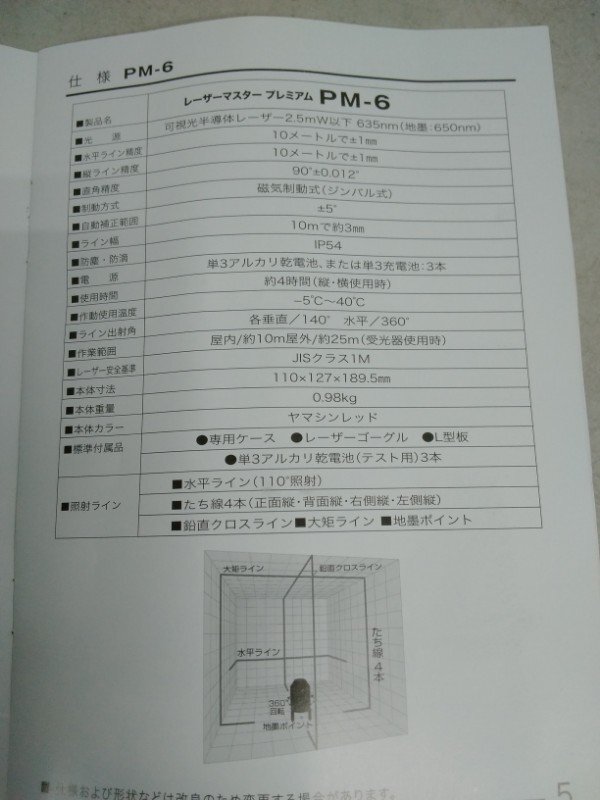 仕様 PM-6
■製品名 レーザーマスター プレミアム PM-6
■光源 可視光半導体レーザー2.5mW以下 635nm(地墨:650nm)
■水平ライン精度 10メートルで±1mm
■縦ライン精度 10メートルで±1mm
■直角精度 90°±0.012°
■制動方式 磁気制動式(ジンバル式)
■自動補正範囲 ±5°
■ライン幅 10mで約3mm
■防塵・防滴 IP54
■電源 単3アルカリ乾電池、または単3充電池:3本
■使用時間 約4時間(縦・横使用時)
■作動使用温度 −5℃〜40℃
■ライン出射角 各垂直/140° 水平/360°
■作業範囲 屋内/約10m屋外/約25m(受光器使用時)
■レーザー安全基準 JISクラス1M
■本体寸法 110×127×189.5mm
■本体重量 0.98kg
■本体カラー ヤマシンレッド
■標準付属品 ●専用ケース ●レーザーゴーグル ●L型板
●単3アルカリ乾電池(テスト用)3本
■照射ライン ■水平ライン(110°照射)
■たち線4本(正面縦・背面縦・右側縦・左側縦)
■鉛直クロスライン■大矩ライン ■地墨ポイント
大矩ライン 鉛直クロスライン
たち線4本
水平ライン
360°
回転
地墨ポイント
■仕様および形状などは改良のため変更する場合があります。
5